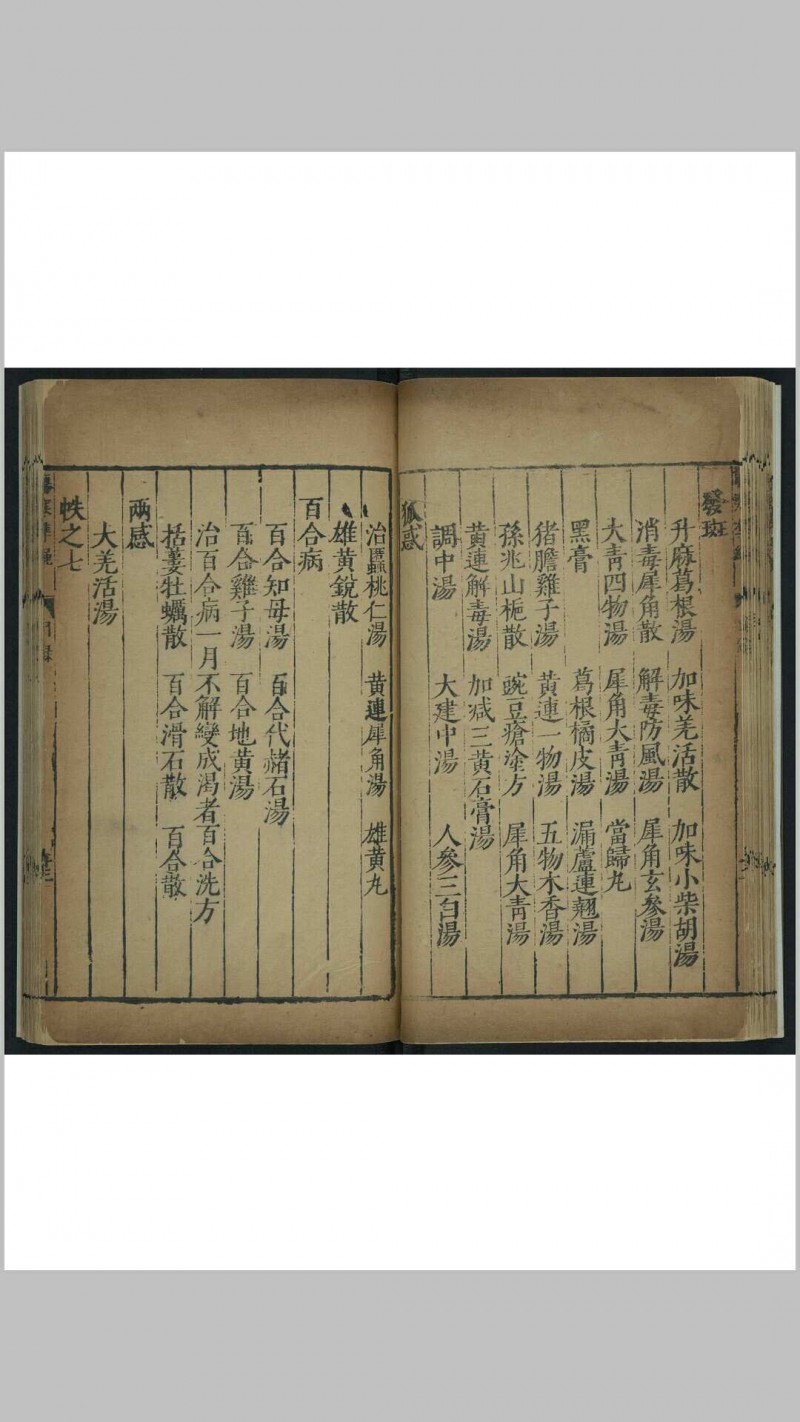 發斑
升麻葛根湯 加味羌活散 加味小柴胡湯
消毒犀角散 解毒防風湯 犀角玄參湯
大青四物湯 犀角大青湯 當歸丸
黑膏 葛根橘皮湯 漏蘆連翹湯
猪膽雞子湯 黃連一物湯 五物木香湯
孫兆山梔散 豌豆瘡塗方 犀角大青湯
黃連解毒湯 加减三黃石膏湯
調中湯 大建中湯 人參三白湯
狐惑
治䘌桃仁湯 黃連犀角湯 雄黃丸
雄黃銳散
百合病
百合知母湯 百合代赭石湯
百合雞子湯 百合地黃湯
治百合病一月不解變成渴者百合洗方
括蔞牡蠣散 百合滑石散 百合散
兩感
大羌活湯
帙之七